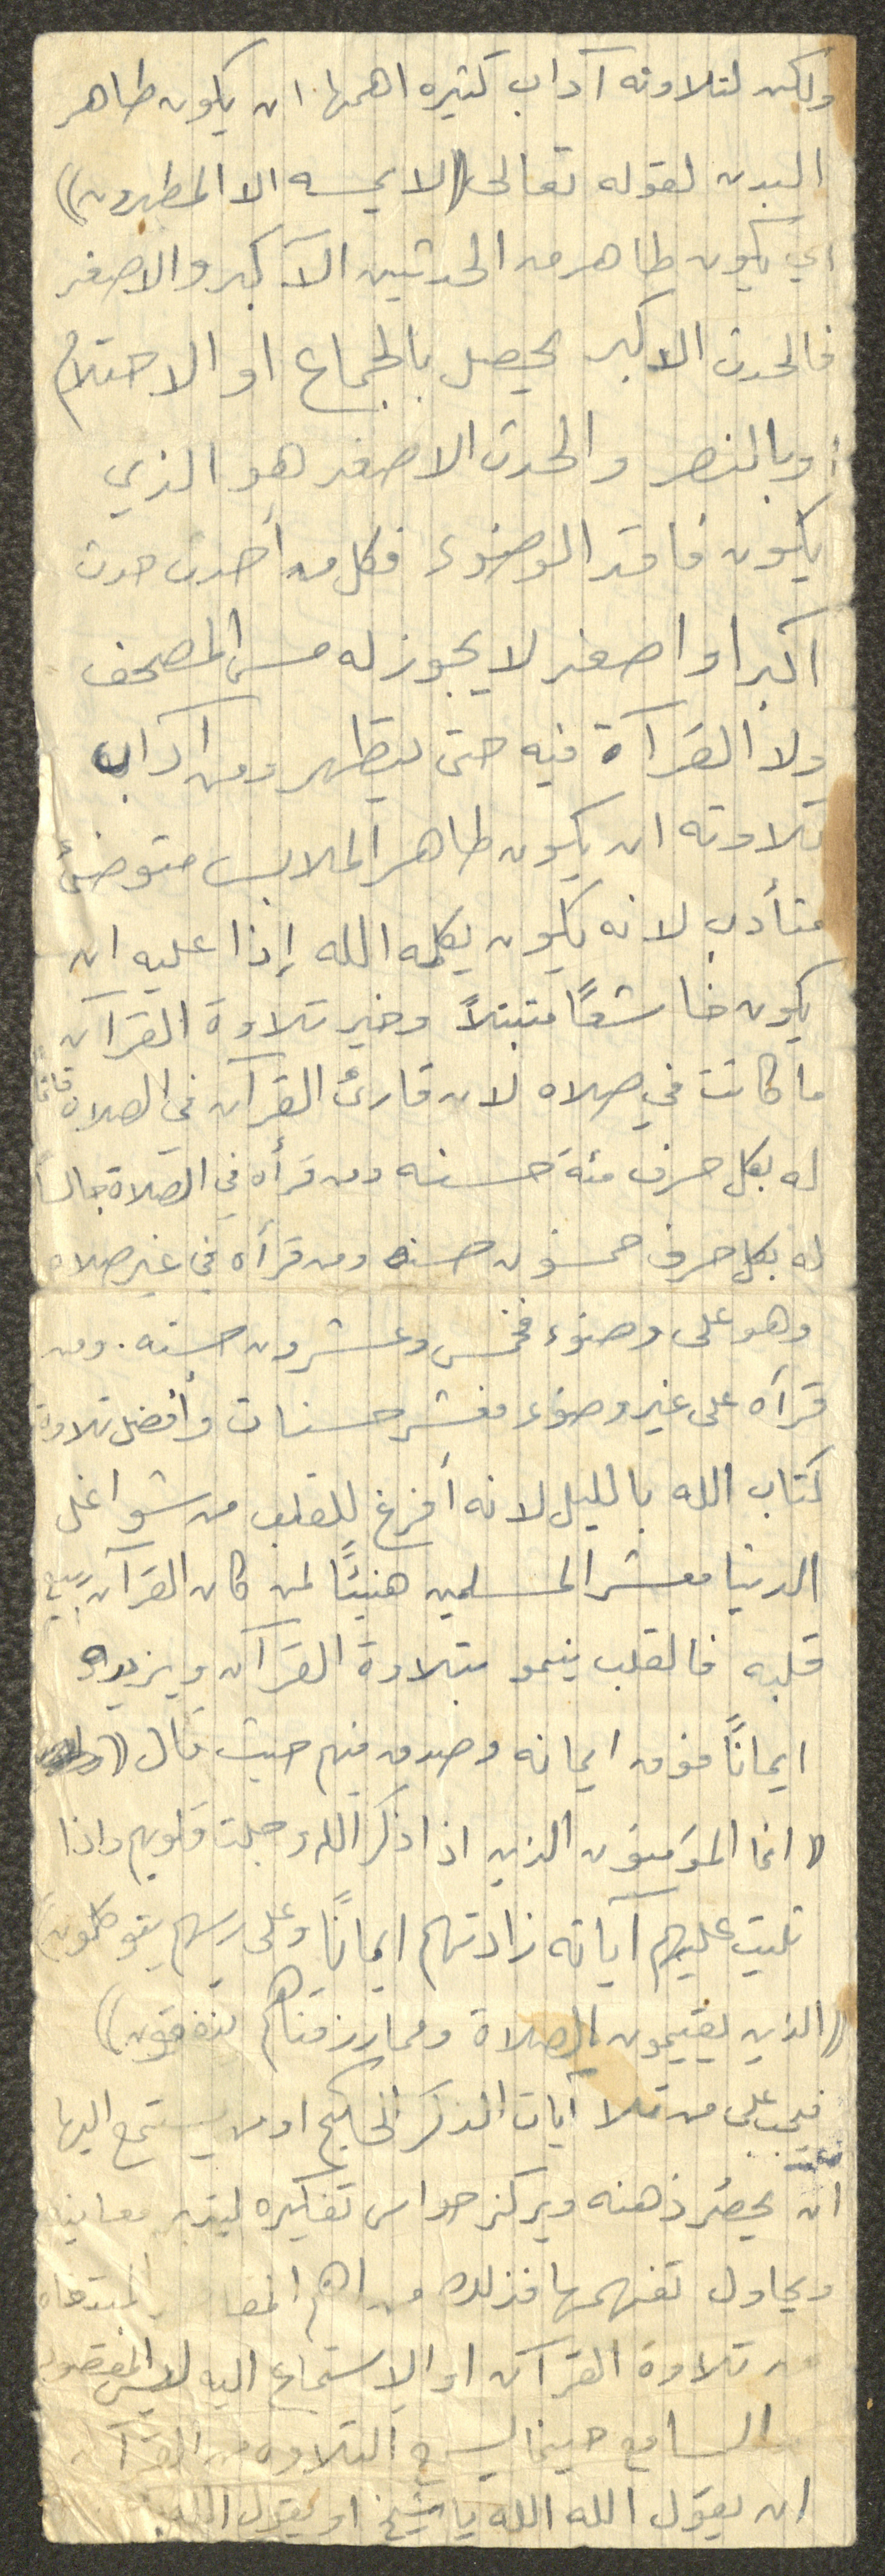 ولكن لتلاوته آداب كثيره اهمها ان يكون طاهر
البدن لقوله تعالى ((لا يمسه الا المطهرون))
اي يكون طاهر من الحدثين الآكبر والاصغر
فالحدث الاكبر يحصل بالجماع او الاحتلام
او بالنصر والحدث الاصغر هو الذي
يكون فاقد الوضوء فكل من أحدث حدث
اكبر او اصغر لا يجوز له مس المصحف
ولا القرآة فيه حتى يتطهر ومن اداب
تلاوته ان يكون طاهر الملابس متوضئ
متأدب لانه يكون يكلمه الله إذا عليه ان
يكون خاشعًا متبتلاً وخير تلاوة القرآن
ما كانت في صلاه لان قارئ القرآن في الصلاه قائما
له بكل حرف مئة حسنه ومن قرأه في الصلاة جالسا
له بكل حرف خمسون حسنه ومن قرآه في غير صلاه
وهو على وضوء فخمس وعشرون حسنه . ومن
قرآه على غير وضوء فعشر حسنات وأفضل تلاوة
كتاب الله بالليل لانه أفرغ للقلب من شواغل
الدنيا معشر المسلمين هنيئًا لمن كان القرآن ربيع
قلبه فالقلب ينمو بتلاوة القرآن ويزيده
ايمانًا فوق ايمانه وصدق فيهم حيث قال
((انما المؤمنون الذين اذا ذكر الله وجلت قلوبهم واذا
تليت عليهم آياته زادتهم ايمانًا وعلى ربهم يتوكلون))
((الذين يقيمون الصلاة ومما رزقناهم ينفقون))
فيجب على من تلا آيات الذكر الحكيم او من يستمع اليها
ان يحضر ذهنه ويركز حواس تفكيره ليتدبر معانيه
ويحاول تفهمها فذلك من اهم المبتغاه
من تلاوة القرآن او الاستماع اليه ليس المقصود
السامع حينما يسمع التلاوه من القرآن
ان يقول الله الله يا شيخ او يقول الله